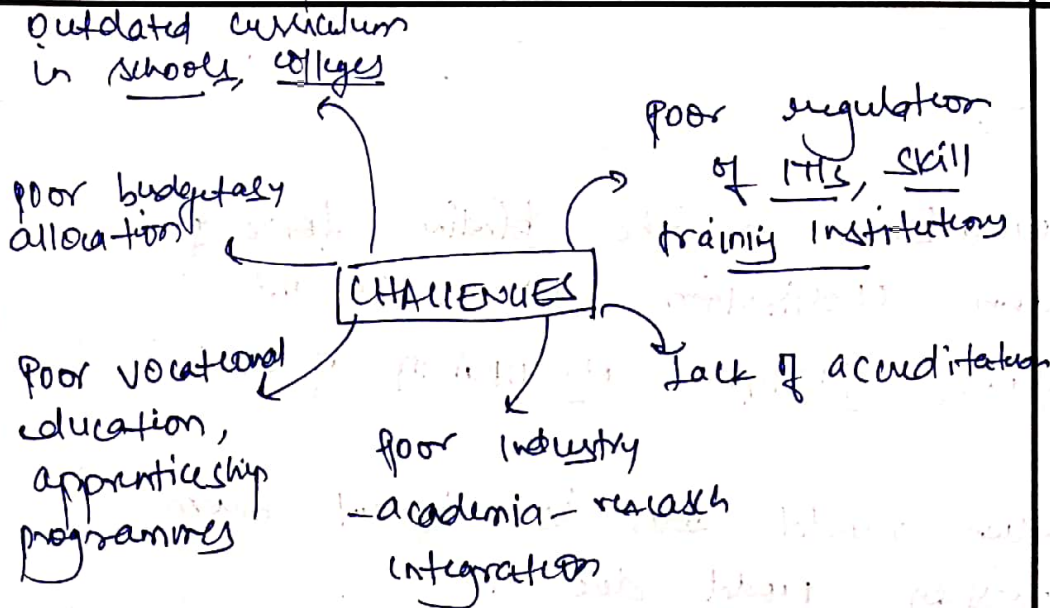 Outdated curriculum
in schools, colleges
poor regulation
of ITIs, skill
training institutions
poor budgetary
allocation
CHALLENGES
Lack of accreditation
Poor vocational
education,
apprenticeship
programmes
Poor industry
-academia- research
integration